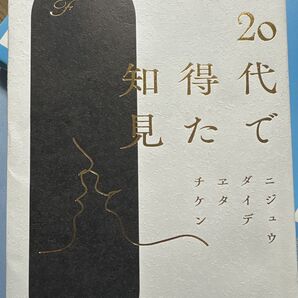 F
20代で
得た
知見
ニジュウ
ダイデ
ヱタ
チケン